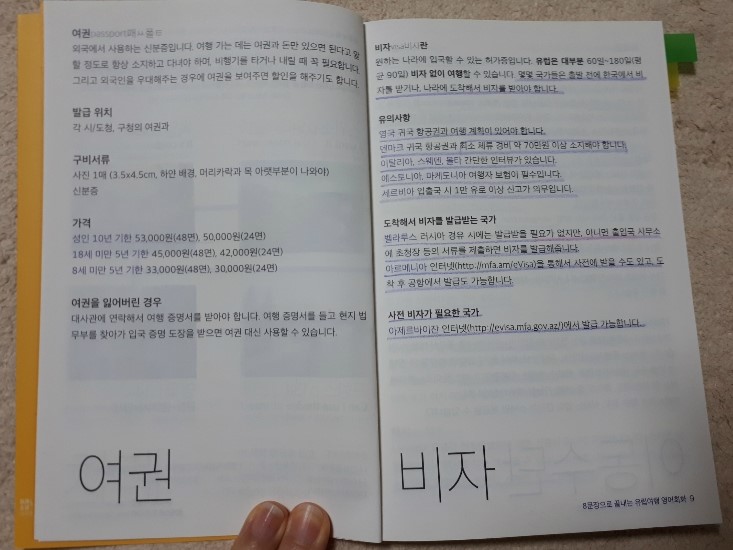 여권passport패ㅆ폴ㅌ
외국에서 사용하는 신분증입니다. 여행 가는 데는 여권과 돈만 있으면 된다고 말
할 정도로 항상 소지하고 다녀야 하며, 비행기를 타거나 내릴 때 꼭 필요합니다.
그리고 외국인을 우대해주는 경우에 여권을 보여주면 할인을 해주기도 합니다.
발급 위치
각 시/도청, 구청의 여권과
구비서류
사진 1매 (3.5x4.5cm, 하얀 배경, 머리카락과 목 아랫부분이 나와야)
신분증
가격
성인 10년 기한 53,000원(48면), 50,000원(24면)
18세 미만 5년 기한 45,000원(48면), 42,000원(24면)
8세 미만 5년 기한 33,000원(48면), 30,000원(24면)
여권을 잃어버린 경우
대사관에 연락해서 여행 증명서를 받아야 합니다. 여행 증명서를 들고 현지 법
무부를 찾아가 입국 증명 도장을 받으면 여권 대신 사용할 수 있습니다.
여권
비자visa비사란
원하는 나라에 입국할 수 있는 허가증입니다. 유럽은 대부분 60일~180일(평
균 90일) 비자 없이 여행할 수 있습니다. 몇몇 국가들은 출발 전에 한국에서 비
자를 받거나, 나라에 도착해서 비자를 받아야 합니다.
유의사항
영국 귀국 항공권과 여행 계획이 있어야 합니다.
덴마크 귀국 항공권과 최소 체류 경비 약 70만원 이상 소지해야 합니다.
이탈리아, 스웨덴, 몰타 간단한 인터뷰가 있습니다.
에스토니아, 마케도니아 여행사 보험이 필수입니다.
세르비아 입출국 시 1만 유로 이상 신고가 의무입니다.
도착해서 비자를 발급받는 국가
벨라루스 러시아 경유 시에는 발급받을 필요가 없지만, 아니면 출입국 사무소
에 초청장 등의 서류를 제출하면 비자를 발급해줍니다.
아르메니아 인터넷(http://mfa.am/eVisa)을 통해서 사전에 받을 수도 있고, 도
착 후 공항에서 발급도 가능합니다.
사전 비자가 필요한 국가
아제르바이잔 인터넷(http://evisa.mfa.gov.az/)에서 발급 가능합니다.
비자
8문장으로 끝내는 유럽여행 영어회화 9